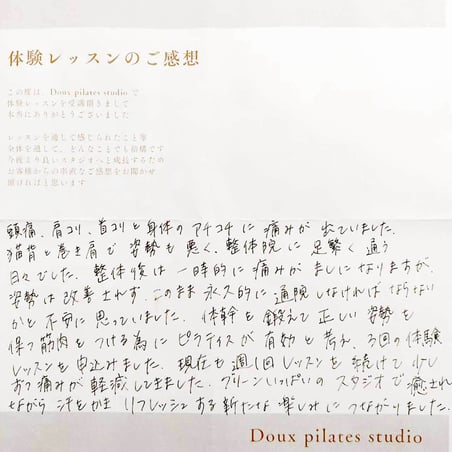 体験レッスンのご感想
この度は、Doux pilates studio で
体験レッスンを受講頂きまして
本当にありがとうございました
レッスンを通して感じられたこと等
全体を通して、どんなことでも結構です
今後より良いスタジオへと成長するため
お客様からの率直なご感想をお聞かせ
頂ければと思います
頭痛、肩コリ、首コリと身体のアチコチに痛みが出ていました。
猫背と巻き肩で姿勢も悪く、整体院に足繁く通う
日々でした。整体後は一時的に痛みがましになりますが、
姿勢は改善されず、このまま永久的に通院しなければならない
かと不安に思っていました。体幹を鍛えて正しい姿勢を
保つ筋肉をつける為にピラティスが有効と考え、3回の体験
レッスンを申込みました。現在も週1回レッスンを続けて少し
ずつ痛みが軽減してきました。グリーンいっぱいのスタジオで癒され
ながら汗をかきリフレッシュする新たな楽しみにつながりました。
Doux pilates studio